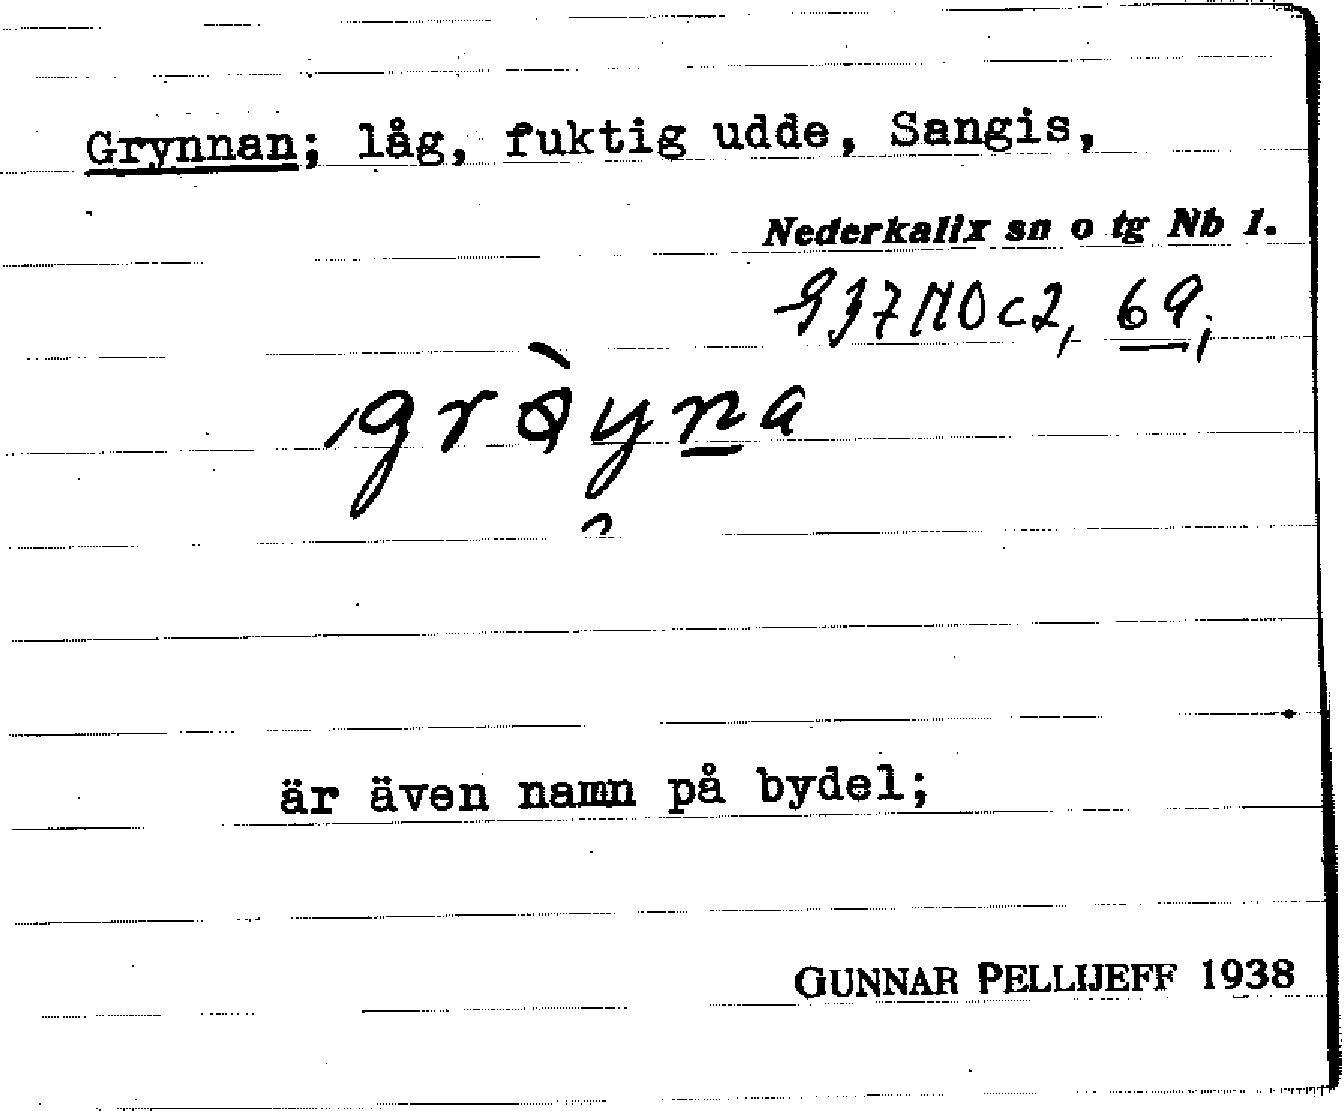 Grynnan; låg, fuktig udde, Sangis,
Nederkalix sn o tg Nb 1.
937 NO c2, 69;
är även namn på bydel;
GUNNAR PELLIJEFF 1938